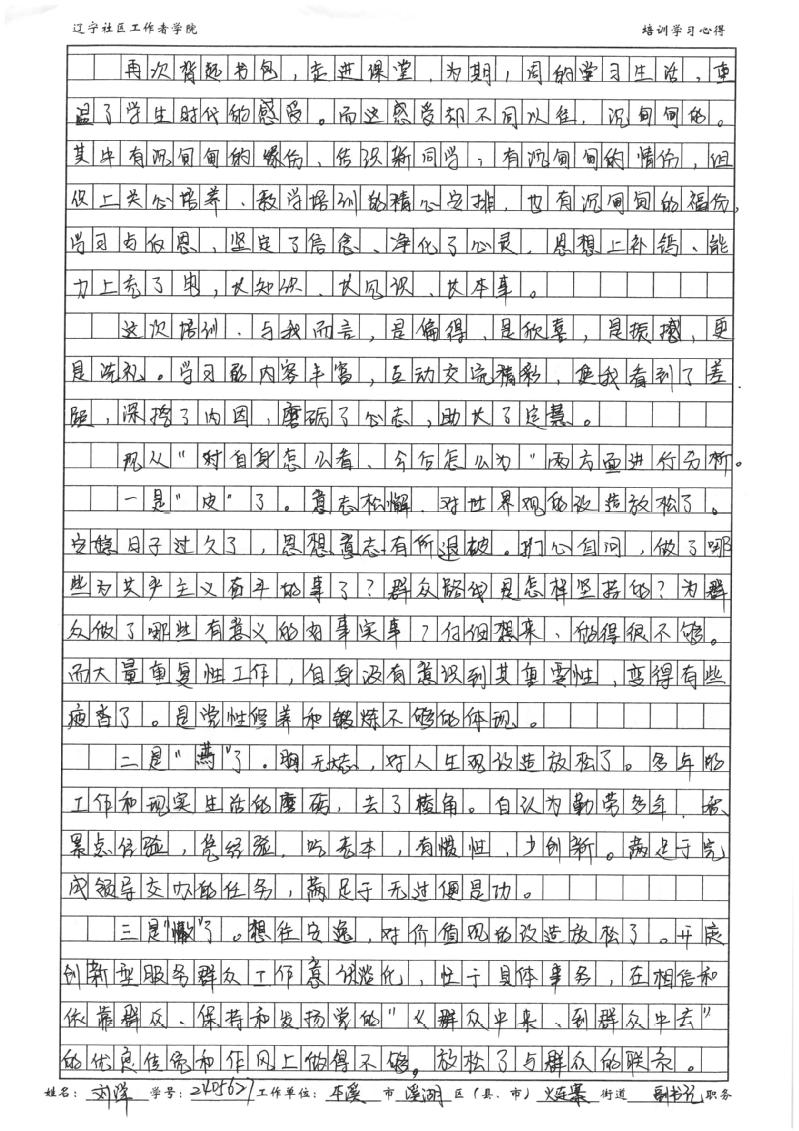 辽宁社区工作者学院 培训学习心得
再次背起书包，走进课堂，为期1周的学习生活，重
温了学生时代的感受。而这感受却不同以往，沉甸甸的。
其中有沉甸甸的缘份，结识新同学；有沉甸甸的情份，组
织上关心培养、教学培训的精心安排，也有沉甸甸的福份，
学习与収恩，坚定了信念、净化了心灵，思想上补钙、能
力上充了电，长知识、长见识、长本事。
这次培训、与我而言，是偏得、是欣喜，是振撼，更
是洗礼。学习的内容丰富，互动交流精彩，使我看到了差
距，深挖了内因，磨砺了心志，助长了定慧。
现从“对自身怎么看、今后怎么为”两方面进行分析。
一是“皮”了。意志松懈，对世界观的改造放松了。
安稳日子过久了，思想意志有所退破。扪心自问，做了哪
些为共产主义奋斗的事了？群众路线是怎样坚持的？为群
众做了哪些有意义的好事实事？仔细想来、做得很不够。
而大量重复性工作，自身没有意识到其重要性，变得有些
疲沓了。是党性修养和锻炼不够的体现。
二是“蔫”了。胸无大志，对人生观改造放松了。多年的
工作和现实生活的磨砺，去了棱角。自认为勤劳多年，积
累点经验，凭经验，吃老本，有惯性，少创新。满足于完
成领导交办的任务，满足于无过便是功。
三是“懒”了。想往安逸，对价值观的改造放松了。开展
创新型服务群众工作意识淡化，忙于具体事务，在相信和
依靠群众、保持和发扬党的“从群众中来、到群众中去”
的优良传统和作风上做得不够。放松了与群众的联系。
姓名：刘洋 学号：2405627 工作单位：本溪 市 溪湖 区（县、市） 火连寨 街道 副书记 职务